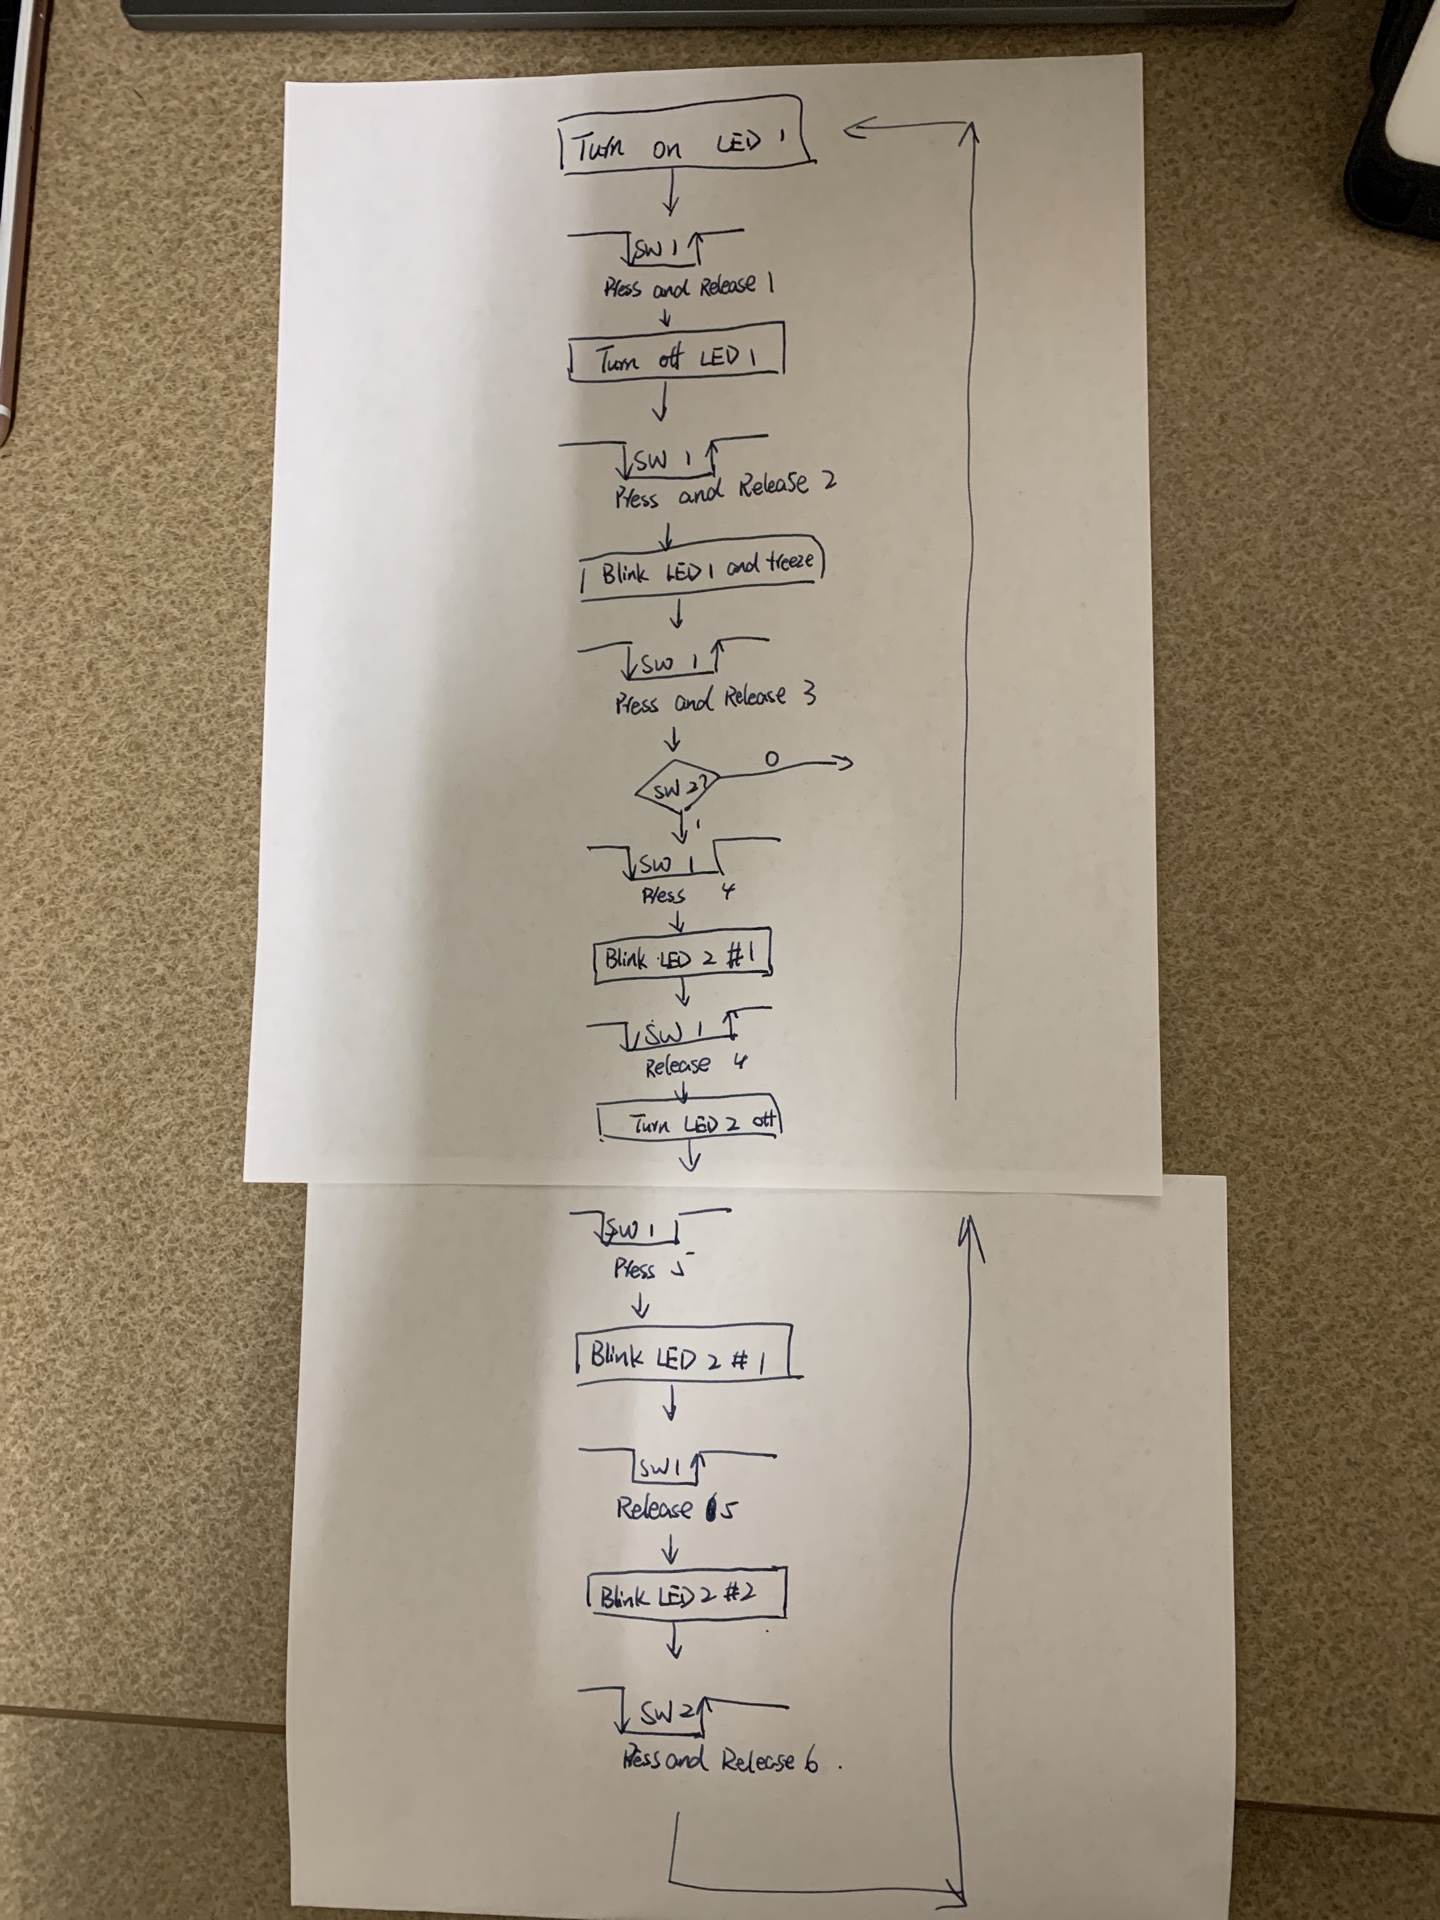 Turn on LED 1
SW 1
Press and Release 1
Turn off LED 1
SW 1
Press and Release 2
Blink LED 1 and freeze
SW 1
Press and Release 3
SW 2?
0
1
SW 1
Press 4
Blink LED 2 #1
SW 1
Release 4
Turn LED 2 off
SW 1
Press 5
Blink LED 2 #1
SW 1
Release 5
Blink LED 2 #2
SW 2
Press and Release 6.